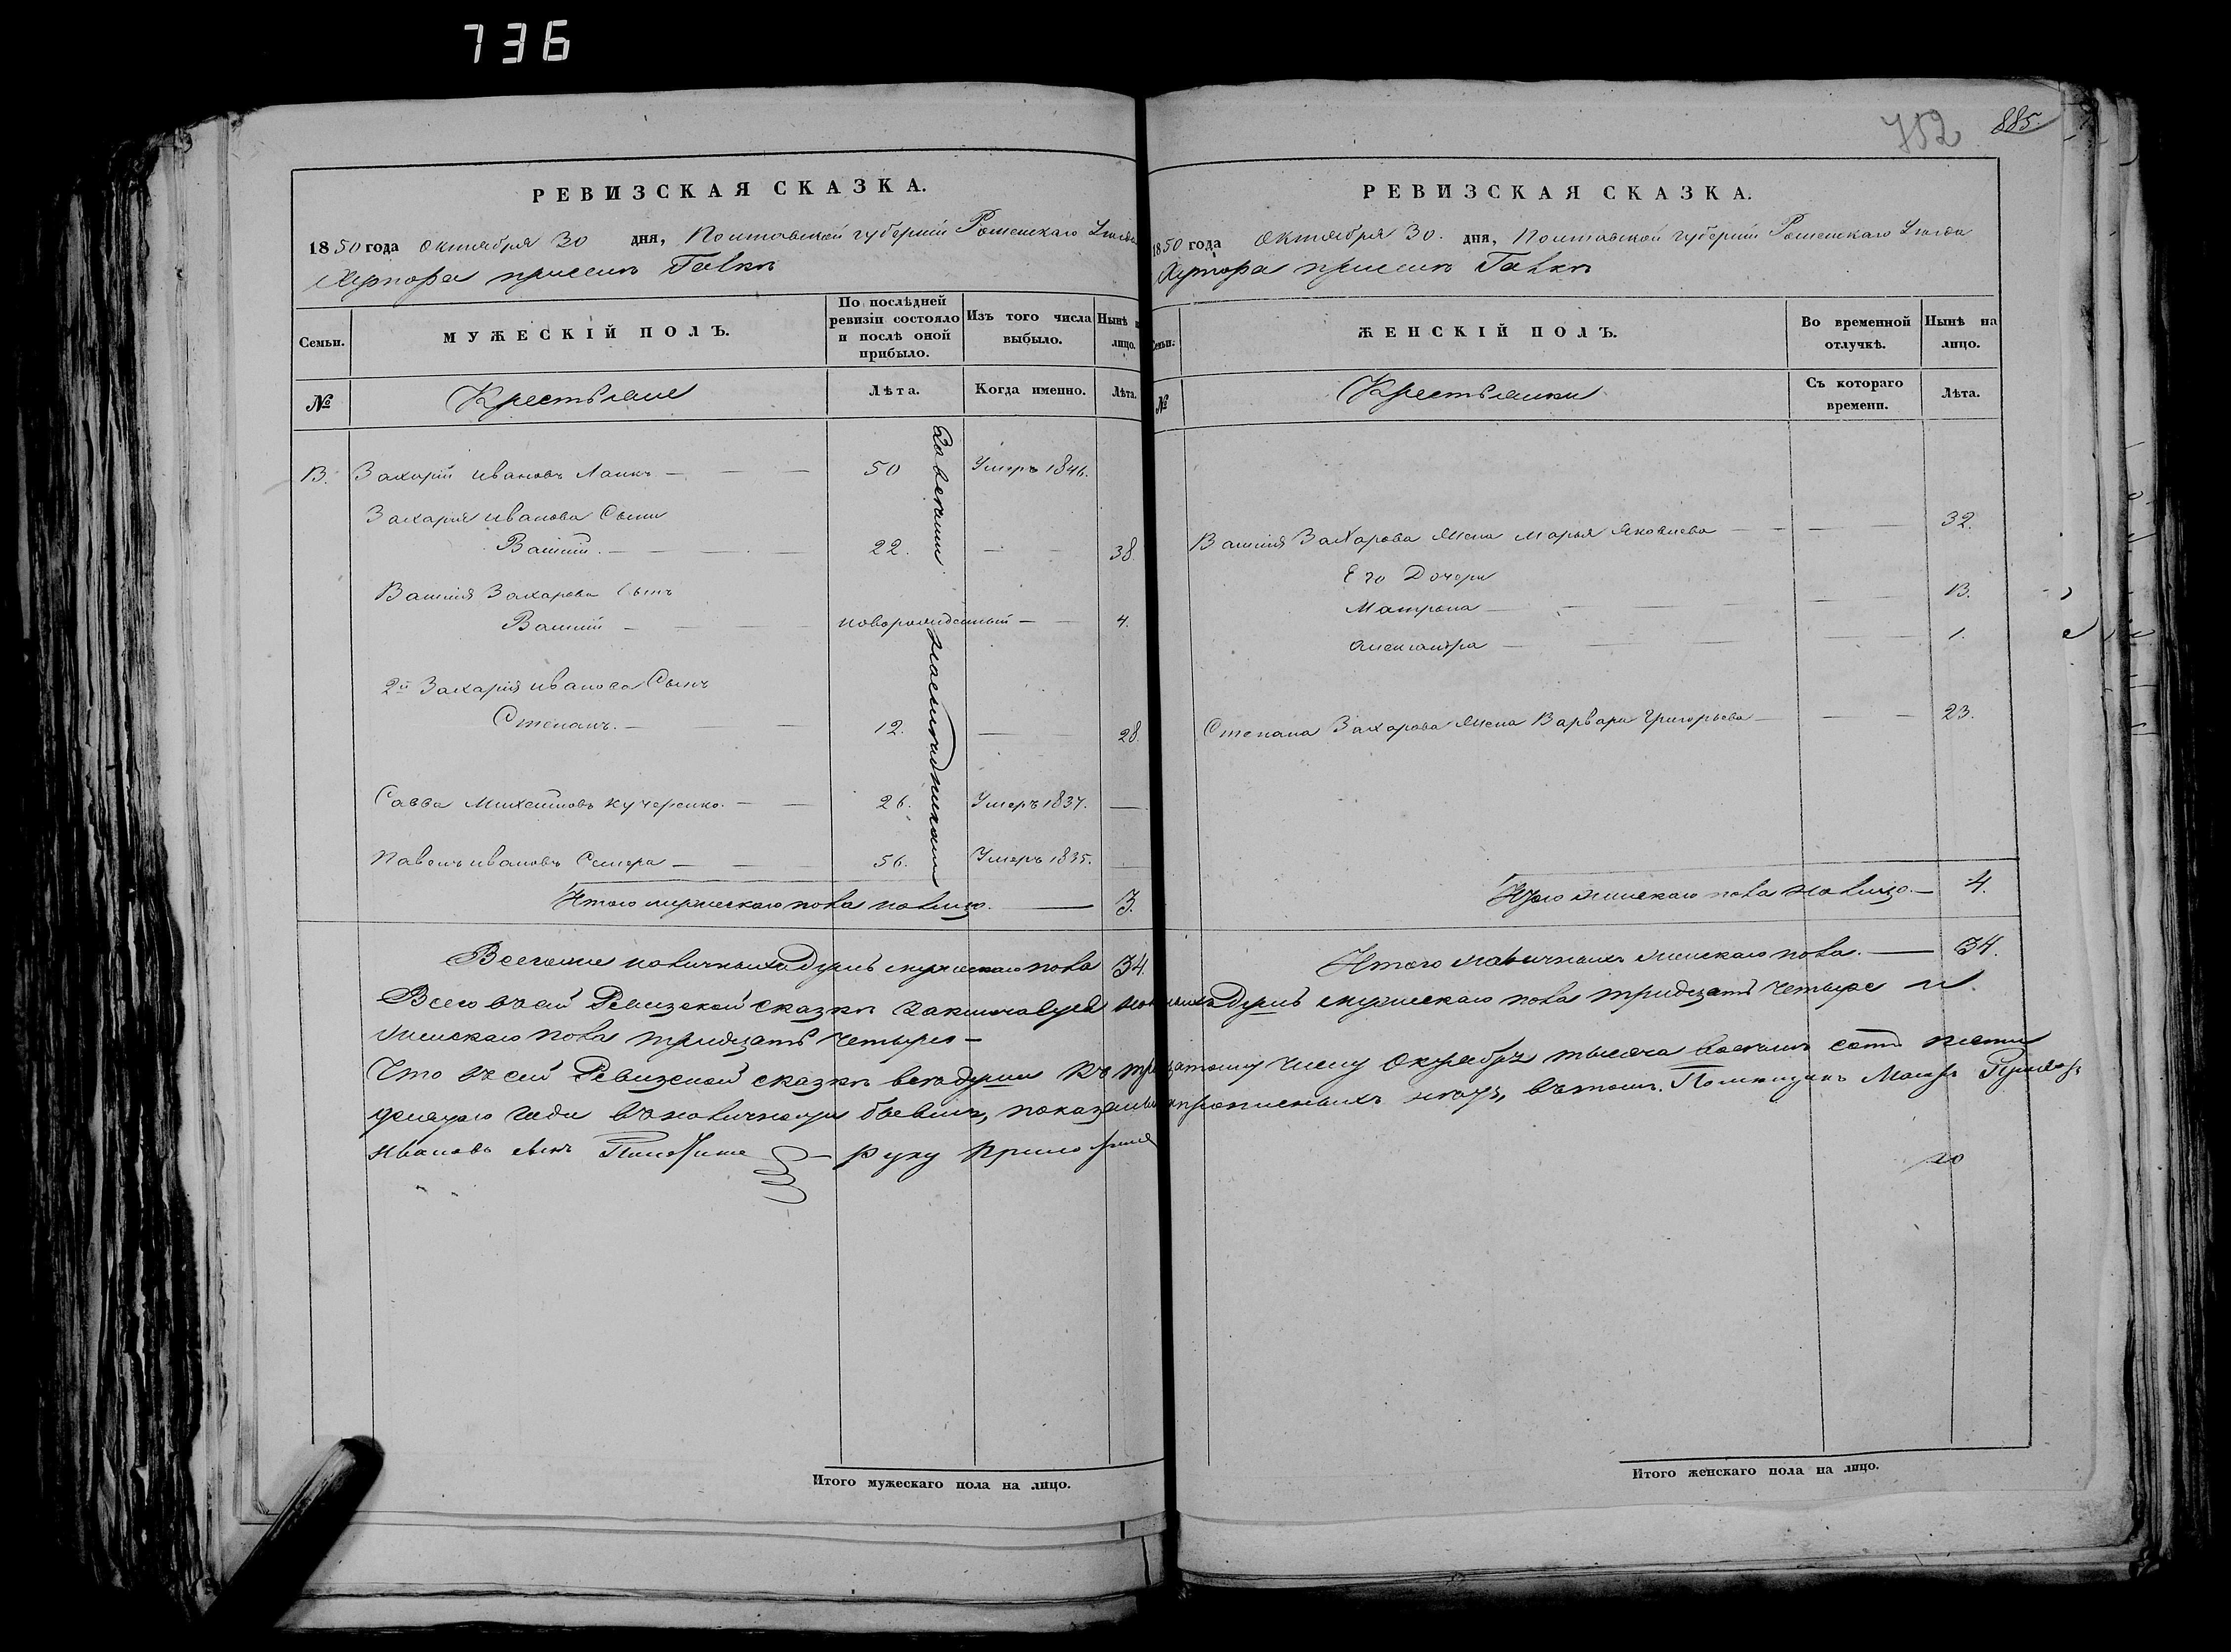 736
752 885.
РЕВИЗСКАЯ СКАЗКА.
1850 года октября 30 дня, Полтавской губернии Роменскаго Уезда
Хутора при селе Галке
Семьи. МУЖЕСКІЙ ПОЛЪ. По послѣдней ревизіи состояло и послѣ оной прибыло. Изъ того числа выбыло. Нынѣ на лицо.
№ Крестьяне Лѣта. Когда именно. Лѣта.
13. Захарій Ивановъ 50 Умеръ 1846.
Захарія Иванова Сыны
Василій. 22. 38
Василія Захарова сынъ
Василій новорожденный 4.
2й Захарія Иванова Сынъ
Степанъ. 12. 28.
Савва Михайловъ Кучеренко. 26. Умеръ 1837.
Павелъ Ивановъ 56. Умеръ 1835.
Итого мужескаго пола налицо. 3.
Всего же наличныхъ душъ мужескаго пола 34.
РЕВИЗСКАЯ СКАЗКА.
1850 года Октября 30. дня, Полтавской губернии Роменскаго Уезда
Хутора при селе Галке
Семьи. ЖЕНСКІЙ ПОЛЪ. Во временной отлучкѣ. Нынѣ на лицо.
№ Крестьянки Съ котораго времени. Лѣта.
Василія Захарова жена Марья Яковлева 32.
Его Дочери
Матрона 13.
Александра 1.
Степана Захарова жена Варвара Григорьева 23.
Итого женскаго пола налицо. 4.
Итого наличныхъ женскаго пола. 34.
Всего въ сей Ревизской сказке заключается наличныхъ душъ мужескаго пола тридцать четыре и
женскаго пола тридцать четыре
Что въ сей Ревизской сказке все души къ тридцатому числу Октября тысяча восемъ сотъ пяти
десятаго года въ наличности бывши, показаны и прописныхъ нетъ, въ томъ. Помещикъ Маіоръ
Ивановъ сынъ руку приложилъ
Итого мужескаго пола на лицо.
Итого женскаго пола на лицо.